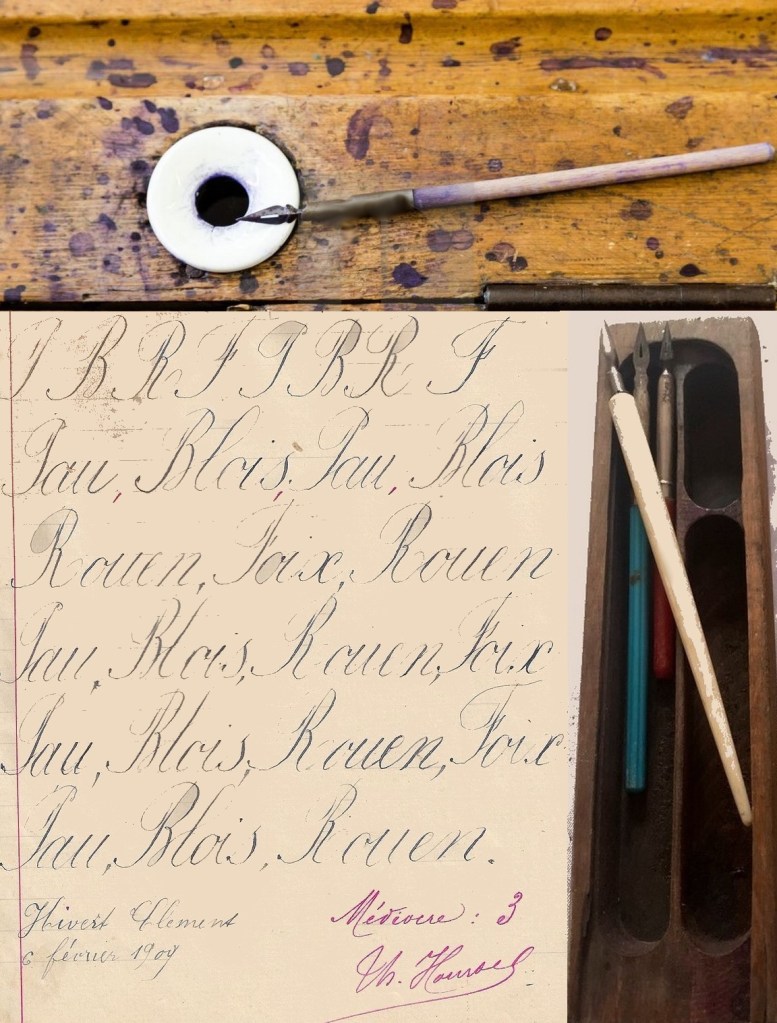 P B R F P B R F
Pau, Blois, Pau, Blois
Rouen, Foix, Rouen
Pau, Blois, Rouen, Foix
Pau, Blois, Rouen, Foix
Pau, Blois, Rouen.
Hivert Clement
6 février 1909
Médiocre : 3
Th.